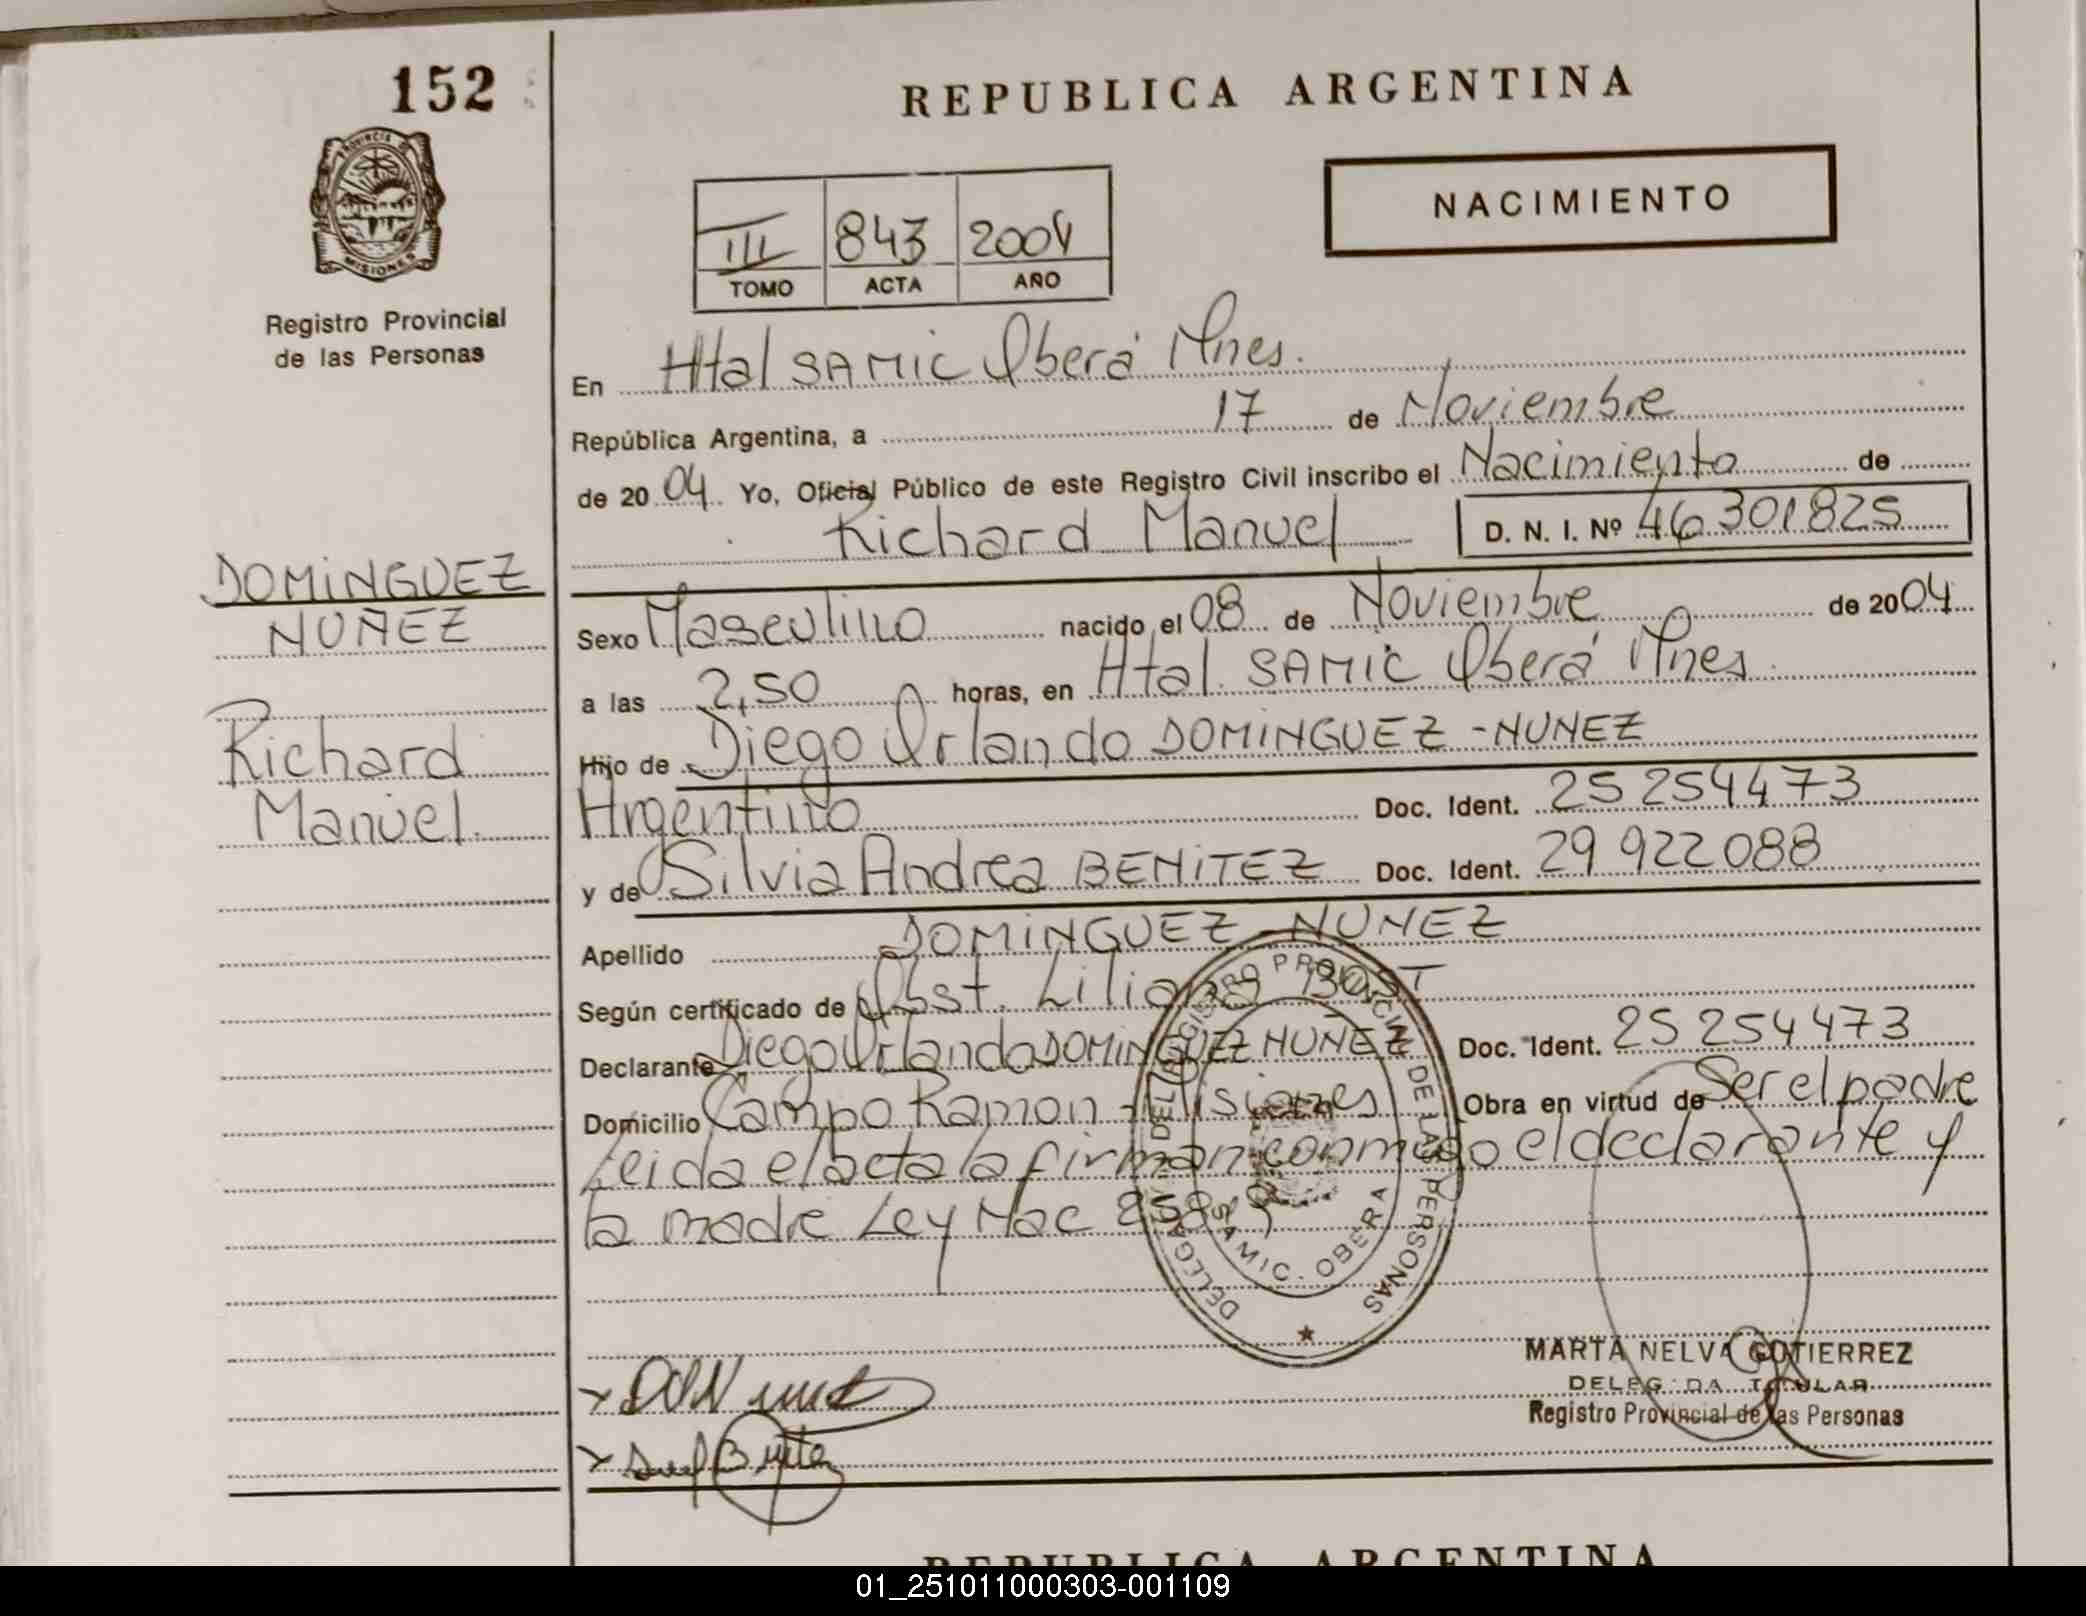 152
REPUBLICA ARGENTINA
PROVINCIA DE
MISIONES
Registro Provincial
de las Personas
NACIMIENTO
III 843 2004
TOMO ACTA AÑO
En Htal SAMIC Oberá Mnes.
República Argentina, a 17 de Noviembre
de 2004 Yo, Oficial Público de este Registro Civil inscribo el Nacimiento de
Richard Manuel D. N. I. Nº 46301825
DOMINGUEZ
NUÑEZ
Richard
Manuel.
Sexo Masculino nacido el 08 de Noviembre de 2004
a las 2,50 horas, en Htal. SAMIC Oberá Mnes.
Hijo de Diego Orlando DOMINGUEZ-NUNEZ
Argentino Doc. Ident. 25254473
y de Silvia Andrea BENITEZ Doc. Ident. 29922088
Apellido DOMINGUEZ-NUNEZ
Según certificado de Obst. Liliana
Declarante Diego Orlando DOMINGUEZ NUNEZ Doc. Ident. 25254473
Domicilio Campo Ramon - Misiones Obra en virtud de Ser el padre
Leida el acta la firman conmigo el declarante y
la madre Ley Nac
DELEGACION DEL REGISTRO PROVINCIAL DE LAS PERSONAS
SAMIC - OBERA
MARTA NELVA GUTIERREZ
DELEGADA TITULAR
Registro Provincial de las Personas
REPUBLICA ARGENTINA
01_251011000303-001109